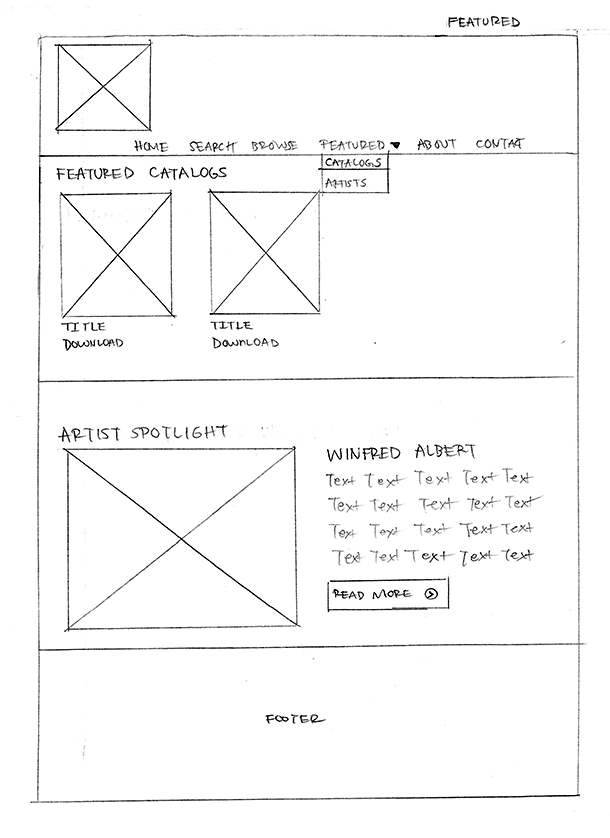 FEATURED
HOME SEARCH BROWSE FEATURED ▼ ABOUT CONTAT
CATALOGS
ARTISTS
FEATURED CATALOGS
TITLE TITLE
DOWNLOAD DOWNLOAD
ARTIST SPOTLIGHT
WINFRED ALBERT
Text Text Text Text Text
Text Text Text Text Text
Text Text Text Text Text
Text Text Text Text Text
READ MORE
FOOTER